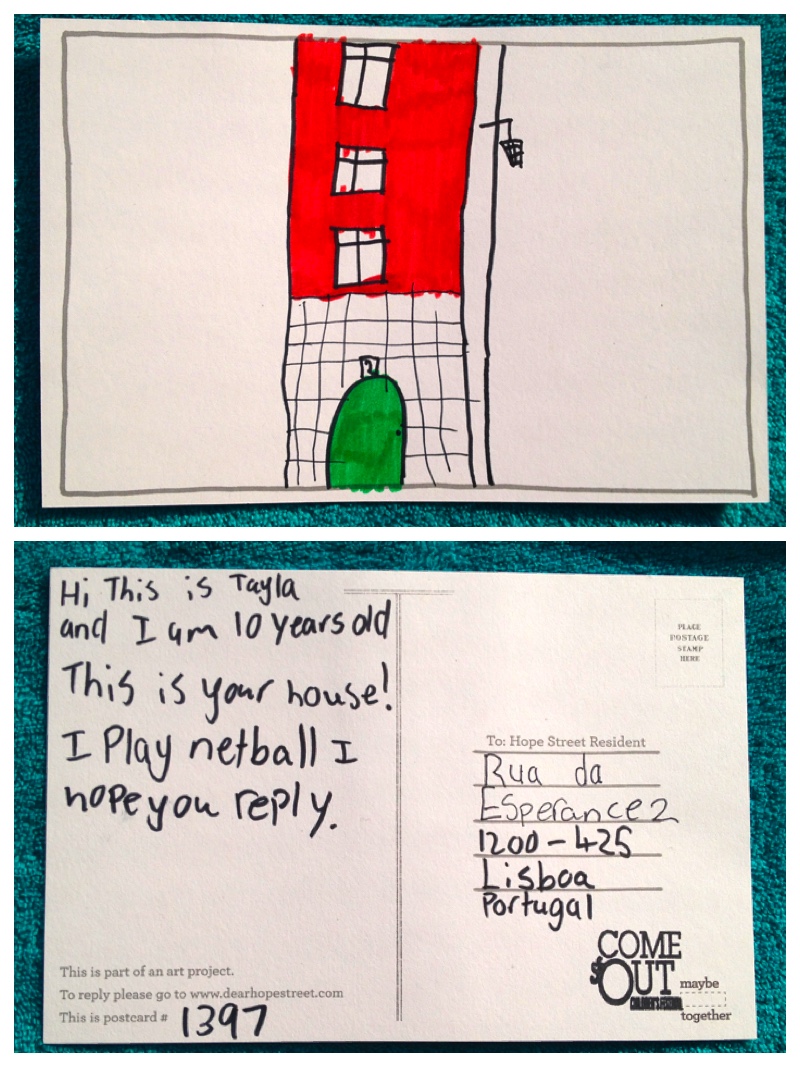 2
Hi This is Tayla
and I am 10 years old
This is your house!
I Play netball I
hope you reply.
This is part of an art project.
To reply please go to www.dearhopestreet.com
This is postcard # 1397
PLACE
POSTAGE
STAMP
HERE
To: Hope Street Resident
Rua da
Esperance 2
1200-425
Lisboa
Portugal
COME
OUT
CHILDREN'S FESTIVAL
maybe
together